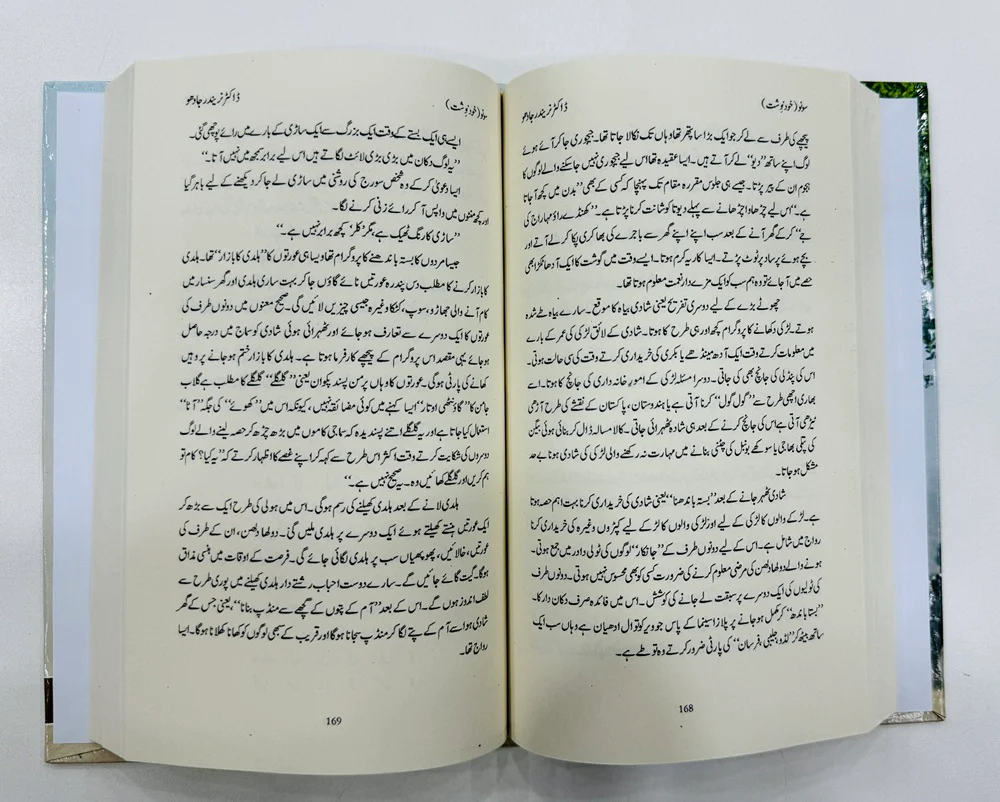 سونو (خود نوشت)
ڈاکٹر نریندر جادھو
پیچھے کی طرف سے لے کر جو ایک بڑا سا پتھر تھا وہاں تک نکالا جاتا تھا۔ جیجوری جا کر آئے ہوئے
لوگ اپنے ساتھ ”دیو“ لے کر آتے ہیں۔ ایسا عقیدہ تھا اس لیے جیجوری نہیں جا سکنے والے لوگوں کا
ہجوم ان کے پیر پڑتا۔ جیسے ہی جلوس مقررہ مقام تک پہنچتا کہ کسی کے بھی ”بدن میں کچھ آ جاتا
ہے۔“ اس لیے چڑھاوا چڑھانے سے پہلے دیوتا کو شانت کرنا پڑتا ہے۔ ”کھنڈے راؤ مہاراج کی
جے“ کر کے گھر آنے کے بعد سب اپنے اپنے گھر سے باجرے کی بھاکری پکا کر لے آتے اور
بچے ہوئے پرساد پر ٹوٹ پڑتے۔ ایسا کاریہ گرم ہوتا۔ ایسے وقت میں گوشت کا ایک آدھا ٹکڑا بھی
حصے میں آ جائے تو وہ ہم سب کو ایک مزے دار نعمت معلوم ہوتا تھا۔
چھوٹے بڑے کے لیے دوسری تفریح یعنی شادی بیاہ کا موقع۔ سارے بیاہ طے شدہ
ہوتے۔ لڑکی دکھانے کا پروگرام کچھ اور ہی طرح کا ہوتا۔ شادی کے لائق لڑکی کی عمر کے بارے
میں معلومات کرتے وقت ایک آدھ مینڈھے یا بکری کی خریداری کرتے وقت کی سی حالت ہوتی۔
اس کی پنڈلی کی جانچ بھی کی جاتی۔ دوسرا مسئلہ لڑکی کے امور خانہ داری کی جانچ کا ہوتا۔ اسے
بھاری اچھی طرح سے ”گول گول“ کرنا آتی ہے یا ہندوستان، پاکستان کے نقشے کی طرح آڑھی
ٹیڑھی آتی ہے اس کی جانچ کرنے کے بعد ہی شادہ ٹھہرائی جاتی۔ کالا مسالہ ڈال کر بنائی ہوئی بیگن
کی پتلی بھاجی یا سوکھے بومبل کی چٹنی بنانے میں مہارت نہ رکھنے والی لڑکی کی شادی ہونا بے حد
مشکل ہو جاتا۔
شادی ٹھہر جانے کے بعد ”بستہ باندھنا“ یعنی شادی کی خریداری کرنا بہت اہم حصہ ہوتا
ہے۔ لڑکے والوں کا لڑکی کے لیے اور لڑکی والوں کا لڑکے لیے کپڑوں وغیرہ کی خریداری کرنا
رواج میں شامل ہے۔ اس کے لیے دونوں طرف کے ”جانکار“ لوگوں کی ٹولی دادر میں جمع ہوتی۔
ہونے والے دولھا دلھن کی مرضی معلوم کرنے کی ضرورت کسی کو بھی محسوس نہیں ہوتی۔ دونوں طرف
کی ٹولیوں کی ایک دوسرے پر سبقت لے جانے کی کوشش۔ اس میں فائدہ صرف دکان دار کا۔
”بستا باندھ“ کر مکمل ہو جانے پر پلازا سینما کے پاس جو ویر کوتوال ادھیان ہے وہاں سب ایک
ساتھ بیٹھ کر ”لڈو، جلیبی، فرسان“ کی پارٹی ضرور کرتے وہ تو طے ہے۔
168
سونو (خود نوشت)
ڈاکٹر نریندر جادھو
ایسے ہی ایک بستے کے وقت ایک بزرگ سے ایک ساڑی کے بارے میں رائے پوچھی گئی۔
”یہ لوگ دکان میں بڑی بڑی لائٹ لگاتے ہیں اس لیے برابر سمجھ میں نہیں آتا۔“
ایسا دعویٰ کر کے وہ شخص سورج کی روشنی میں ساڑی لے جا کر دیکھنے کے لیے باہر گیا
اور کچھ منٹوں میں واپس آ کر رائے زنی کرنے لگا۔
”ساڑی کا رنگ ٹھیک ہے، مگر ’کلر‘ کچھ برابر نہیں ہے۔“
جیسا مردوں کا بستہ باندھنے کا پروگرام تھا ویسا ہی عورتوں کا ”ہلدی کا بازار“ تھا۔ ہلدی
کا بازار کرنے کا مطلب دس پندرہ عورتیں نائے گاؤں جا کر بہت ساری ہلدی اور گھر سنسار میں
کام آنے والی جھاڑو، سوپ، کنکا وغیرہ جیسی چیزیں لائیں گی۔ صحیح معنوں میں دونوں طرف کی
عورتوں کا ایک دوسرے سے تعارف ہو جائے اور ٹھہرائی ہوئی شادی کو سماج میں درجہ حاصل
ہو جائے یہی مقصد اس پروگرام کے پیچھے کارفرما ہوتا ہے۔ ہلدی کا بازار ختم ہو جانے پر وہیں
کھانے کی پارٹی ہوگی۔ عورتوں کا وہاں پر من پسند پکوان یعنی ”گلگلے“ گلگلے کا مطلب ہے گلاب
جامن کا ”گاؤنٹھی اوتار“ ایسا کہنے میں کوئی مضائقہ نہیں، کیونکہ اس میں ”کھوئے“ کی جگہ ”آٹا“
استعمال کیا جاتا ہے اور یہ گلگلے اتنے پسندیدہ کہ سماجی کاموں میں بڑھ چڑھ کر حصہ لینے والے لوگ
دوسروں کی شکایت کرتے وقت اکثر اس طرح سے کہہ کر اپنے غصے کا اظہار کرتے کہ ”یہ کیا؟ کام تو
ہم کریں اور گلگلے کھائیں وہ۔ یہ صحیح نہیں ہے۔“
ہلدی لانے کے بعد ہلدی کھیلنے کی رسم ہوگی۔ اس میں ہولی کی طرح ایک سے بڑھ کر
ایک عورتیں ہنستے کھیلتے ہوئے ایک دوسرے پر ہلدی ملیں گی۔ دولھا دلھن، ان کے طرف کی
عورتیں، خالائیں، پھوپھیاں سب پر ہلدی لگائی جائے گی۔ فرصت کے اوقات میں ہنسی مذاق
ہوگا۔ گیت گائے جائیں گے۔ سارے دوست احباب رشتے دار ہلدی کھیلنے میں پوری طرح سے
لطف اندوز ہوں گے۔ اس کے بعد ”آم کے پتوں کے گچھے سے منڈپ بنانا“، یعنی جس کے گھر
شادی ہو اسے آم کے پتے لگا کر منڈپ سجانا ہوگا اور قریب کے سبھی لوگوں کو کھانا کھلانا ہوگا۔ ایسا
رواج تھا۔
169